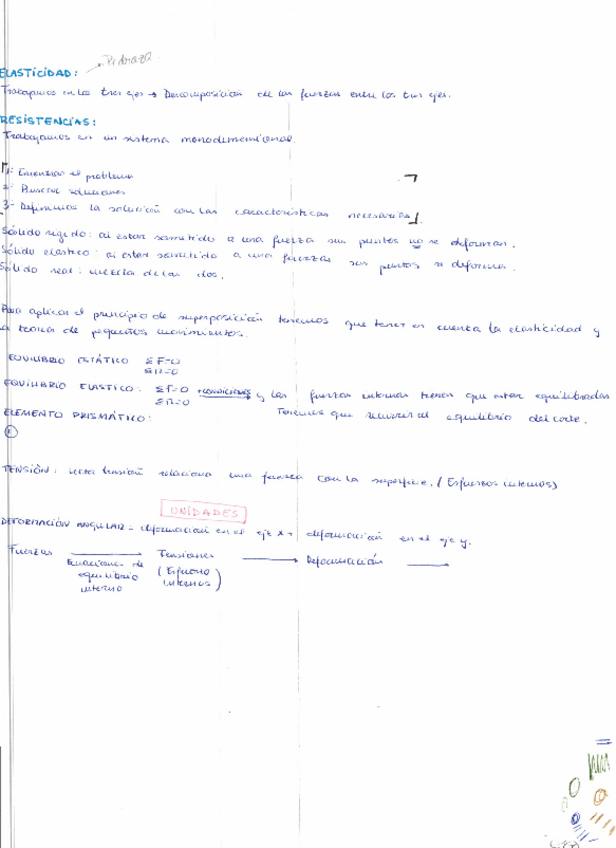 Pedraza
ELASTICIDAD:
Trabajamos en los tres ejes → Descomposición de las fuerzas entre los tres ejes.
RESISTENCIAS:
Trabajamos en un sistema monodimensional.
1- Enunciar el problema
2- Buscar soluciones
3- Definimos la solución con las características necesarias.
Sólido rígido: al estar sometido a una fuerza sus puntos no se deforman.
Sólido elástico: al estar sometido a una fuerzas sus puntos si deforma.
Sólido real: mezcla de los dos.
Para aplicar el principio de superposición tenemos que tener en cuenta la elasticidad y
la teoría de pequeños movimientos.
EQUILIBRIO ESTÁTICO ΣF=0
ΣM=0
EQUILIBRIO ELASTICO: ΣF=0 +condiciones y las fuerzas internas tienen que estar equilibradas
ΣM=0
ELEMENTO PRISMÁTICO: Tenemos que recurrir al equilibrio del corte.
TENSIÓN: esta tensión relaciona una fuerza con la superficie. (Esfuerzos internos)
UNIDADES
DEFORMACIÓN ANGULAR = deformación en el eje x + deformación en el eje y.
Fuerzas → Tensiones → Deformación →
Ecuaciones de equilibrio interno
(Esfuerzo internos)